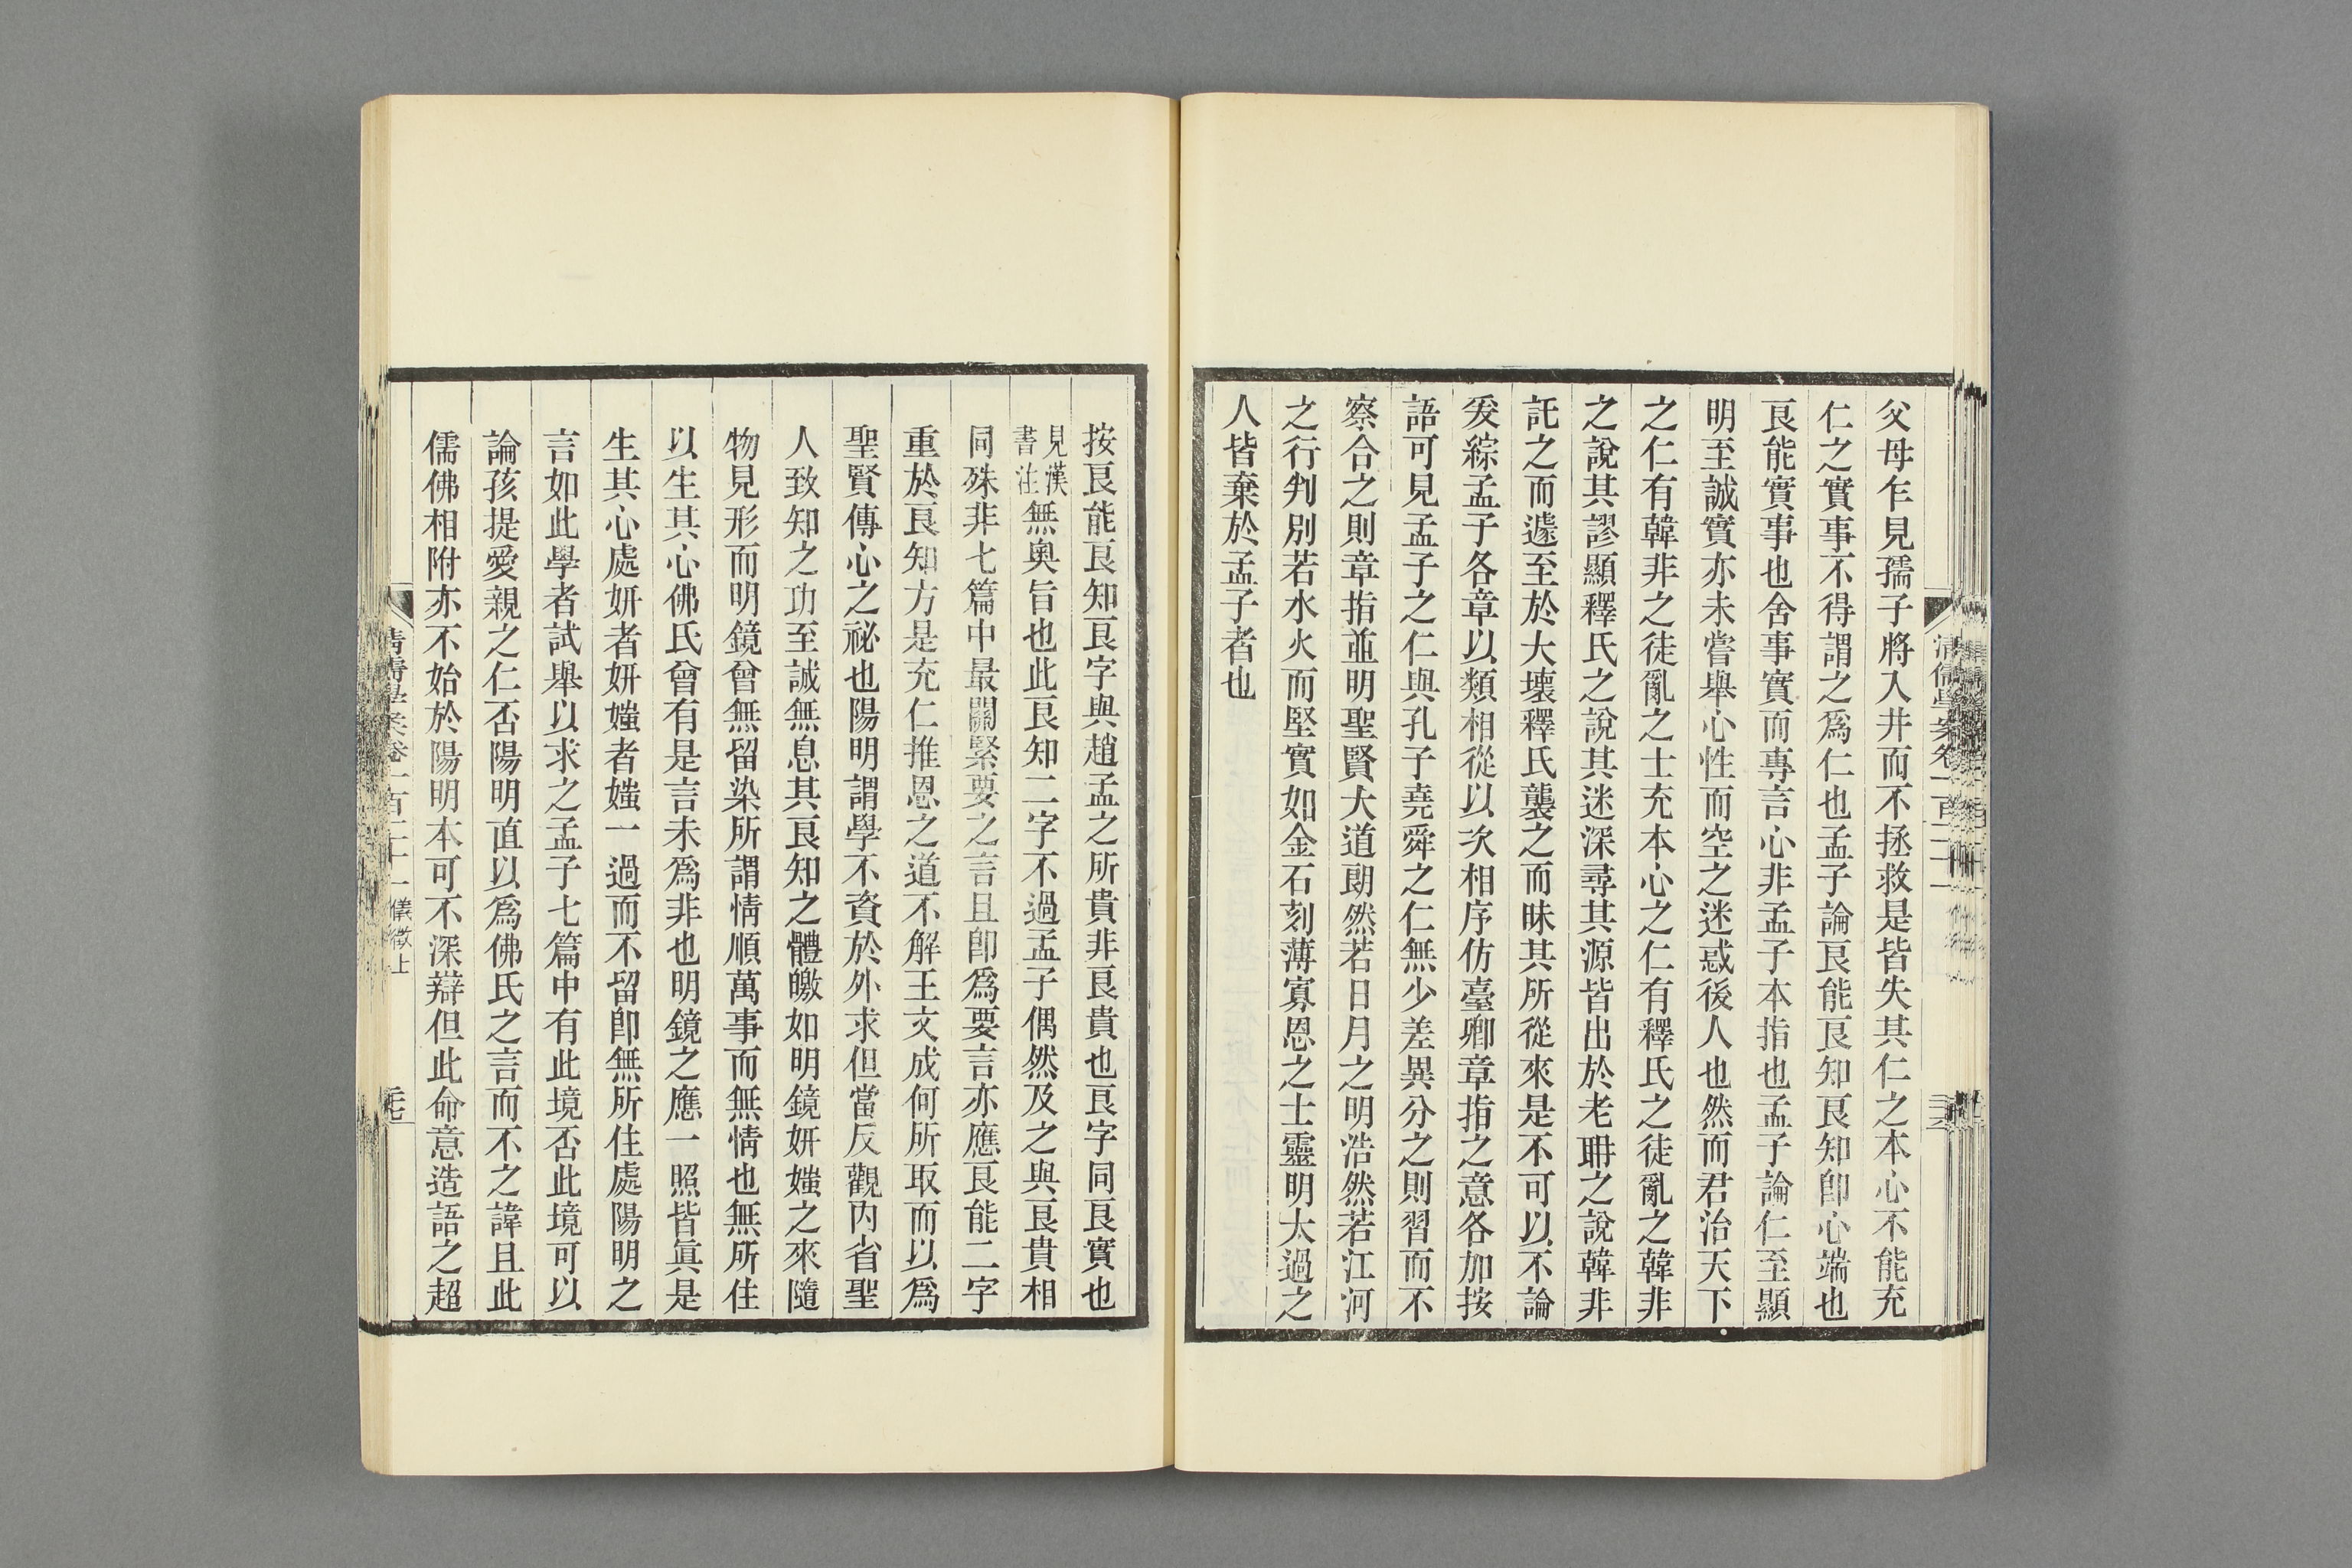 父母乍見孺子將入井而不拯救是皆失其仁之本心不能充
仁之實事不得謂之爲仁也孟子論良能良知卽心端也
良能實事也舍事實而專言心非孟子本指也孟子論仁至顯
明至誠實亦未嘗舉心性而空之迷惑後人也然而君治天下
之仁有韓非之徒亂之士充本心之仁有釋氏之徒亂之韓非
之說其謬顯釋氏之說其迷深尋其源皆出於老聃之說韓非
託之而遽至於大壞釋氏襲之而昧其所從來是不可以不論
爰綜孟子各章以類相從以次相序仿臺卿章指之意各加按
語可見孟子之仁與孔子堯舜之仁無少差異分之則習而不
察合之則章指並明聖賢大道朗然若日月之明浩然若江河
之行判別若水火而堅實如金石刻薄寡恩之士靈明太過之
人皆棄於孟子者也
清儒學案卷一百二十一
按良能良知良字與趙孟之所貴非良貴也良字同良實也
見漢
書注無奧旨也此良知二字不過孟子偶然及之與良貴相
同殊非七篇中最關緊要之言且卽爲要言亦應良能二字
重於良知方是充仁推恩之道不解王文成何所取而以爲
聖賢傳心之祕也陽明謂學不資於外求但當反觀內省聖
人致知之功至誠無息其良知之體皦如明鏡妍媸之來隨
物見形而明鏡曾無留染所謂情順萬事而無情也無所住
以生其心佛氏曾有是言未爲非也明鏡之應一照皆眞是
生其心處妍者妍媸者媸一過而不留卽無所住處陽明之
言如此學者試舉以求之孟子七篇中有此境否此境可以
論孩提愛親之仁否陽明直以爲佛氏之言而不之諱且此
儒佛相附亦不始於陽明本可不深辯但此命意造語之超
清儒學案卷一百二十一儀徵上